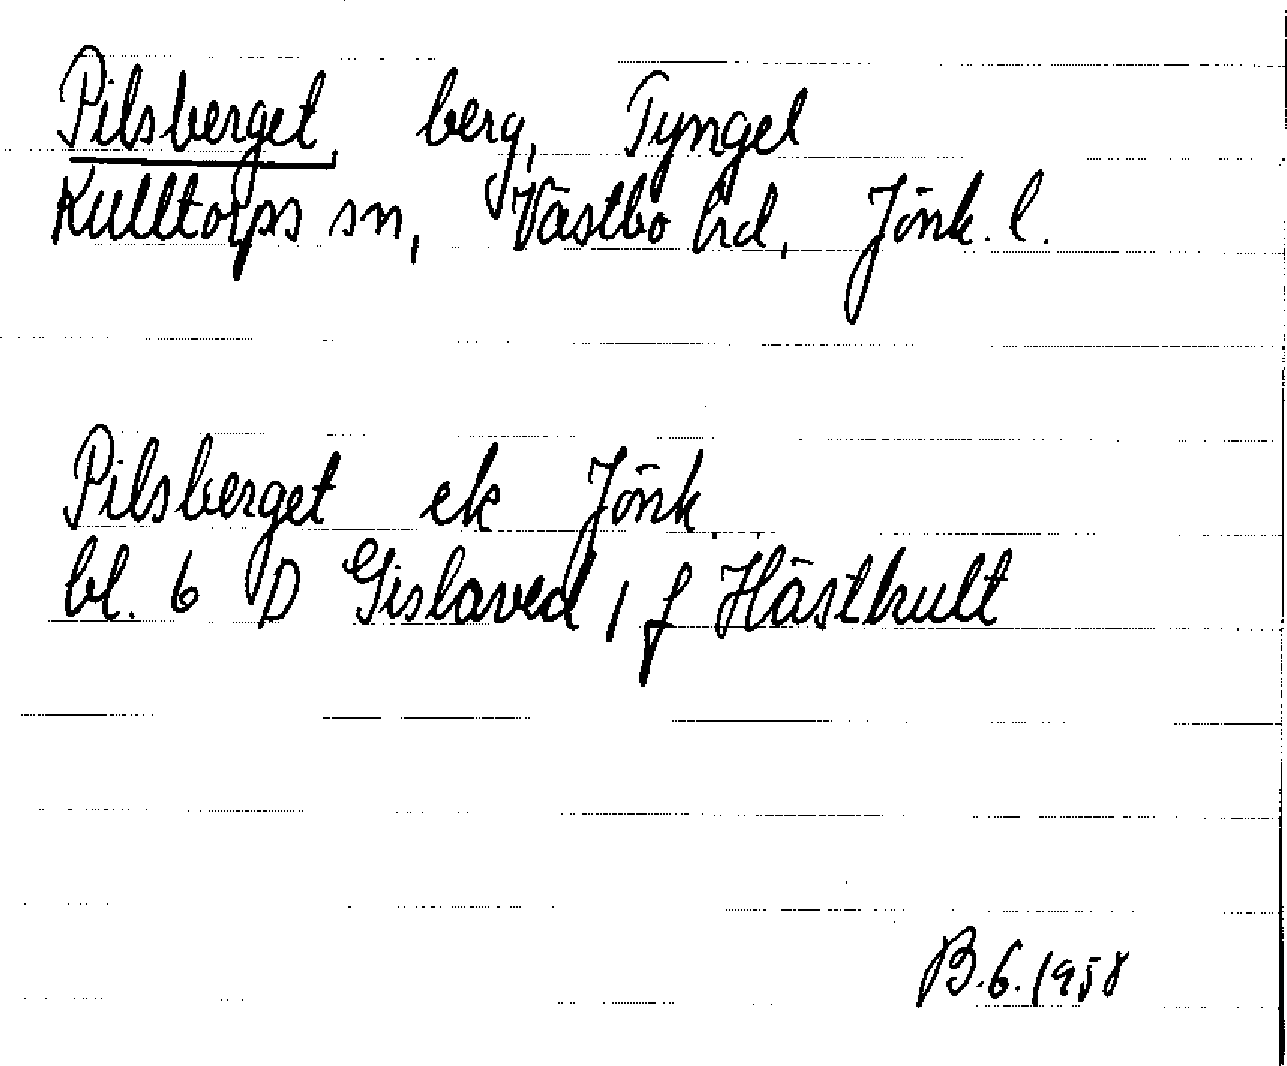 Pilsberget, berg, Tyngel
Kulltorps sn, Västbo hd, Jönk. l.
Pilsberget ek Jönk.
bl. 6 D Gislaved, 1 f Hästhult
B.6.1958